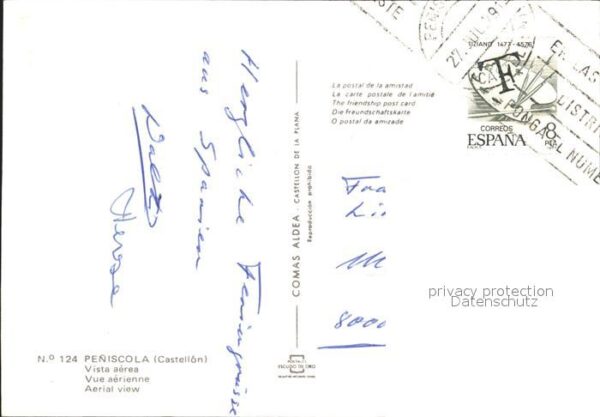 Herzliche Feriengrüsse
aus Spanien
Walter
N.º 124 PEÑISCOLA (Castellón)
Vista aérea
Vue aérienne
Aerial view
COMAS ALDEA - CASTELLON DE LA PLANA
Reproducción prohibida
POSTAL
ESCUDO DE ORO
La postal de la amistad
La carte postale de l'amitié
The friendship post card
Die Freundschaftskarte
O postal da amizade
TIZIANO 1477-1576
CORREOS
8 PTA
ESPAÑA
EN LAS
DISTRI
PONGA EL NUME
Fra
Li
8000
privacy protection
Datenschutz